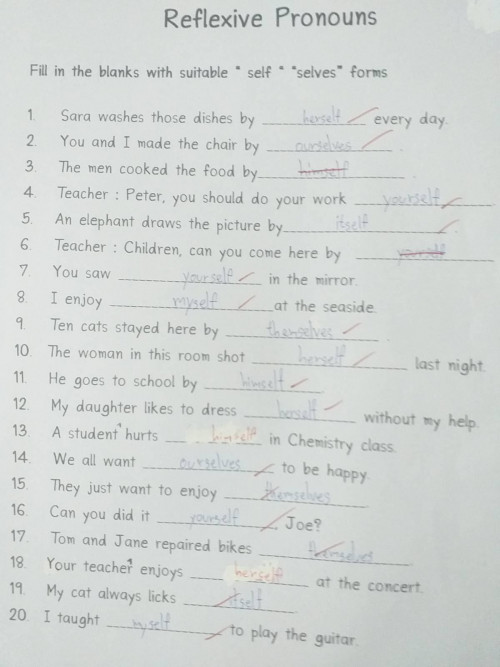 Reflexive Pronouns
Fill in the blanks with suitable " self " "selves" forms
1. Sara washes those dishes by herself every day.
2. You and I made the chair by ourselves .
3. The men cooked the food by himself
4. Teacher : Peter, you should do your work yourself
5. An elephant draws the picture by itself .
6. Teacher : Children, can you come here by yourself
7. You saw yourself in the mirror.
8. I enjoy myself at the seaside.
9. Ten cats stayed here by themselves .
10. The woman in this room shot herself last night.
11. He goes to school by himself
12. My daughter likes to dress herself without my help.
13. A student hurts himself in Chemistry class.
14. We all want ourselves to be happy.
15. They just want to enjoy themselves
16. Can you did it yourself , Joe?
17. Tom and Jane repaired bikes themselves
18. Your teacher enjoys herself at the concert.
19. My cat always licks itself
20. I taught myself to play the guitar.